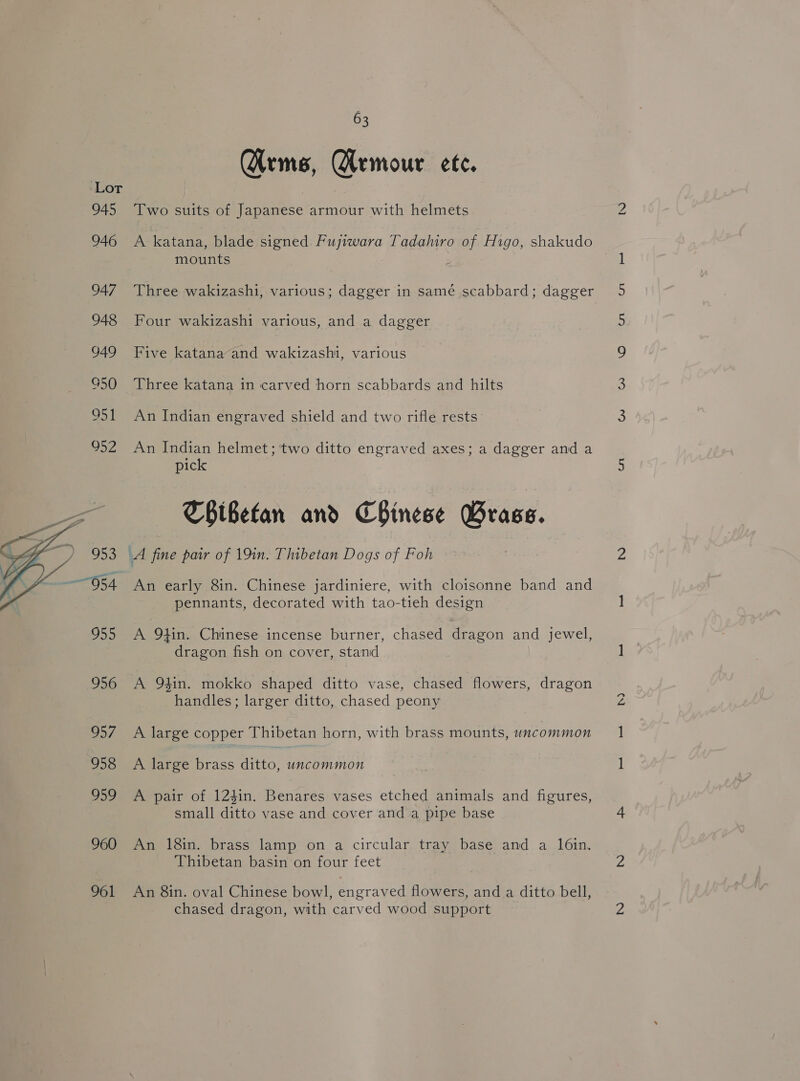 63
Arms, Armour etc.
Lot
945 Two suits of Japanese armour with helmets 2
946 A katana, blade signed Fujiwara Tadahiro of Higo, shakudo
mounts 1
947 Three wakizashi, various; dagger in samé scabbard; dagger 5
948 Four wakizashi various, and a dagger 5
949 Five katana and wakizashi, various 9
950 Three katana in carved horn scabbards and hilts 3
951 An Indian engraved shield and two rifle rests 3
952 An Indian helmet; two ditto engraved axes; a dagger and a
pick 5
Thibetan and Chinese Brass.
953 A fine pair of 19in. Thibetan Dogs of Foh 2
954 An early 8in. Chinese jardiniere, with cloisonne band and
pennants, decorated with tao-tieh design 1
955 A 9¼in. Chinese incense burner, chased dragon and jewel,
dragon fish on cover, stand 1
956 A 9¾in. mokko shaped ditto vase, chased flowers, dragon
handles; larger ditto, chased peony 2
957 A large copper Thibetan horn, with brass mounts, uncommon 1
958 A large brass ditto, uncommon 1
959 A pair of 12½in. Benares vases etched animals and figures,
small ditto vase and cover and a pipe base 4
960 An 18in. brass lamp on a circular tray base and a 16in.
Thibetan basin on four feet 2
961 An 8in. oval Chinese bowl, engraved flowers, and a ditto bell,
chased dragon, with carved wood support 2